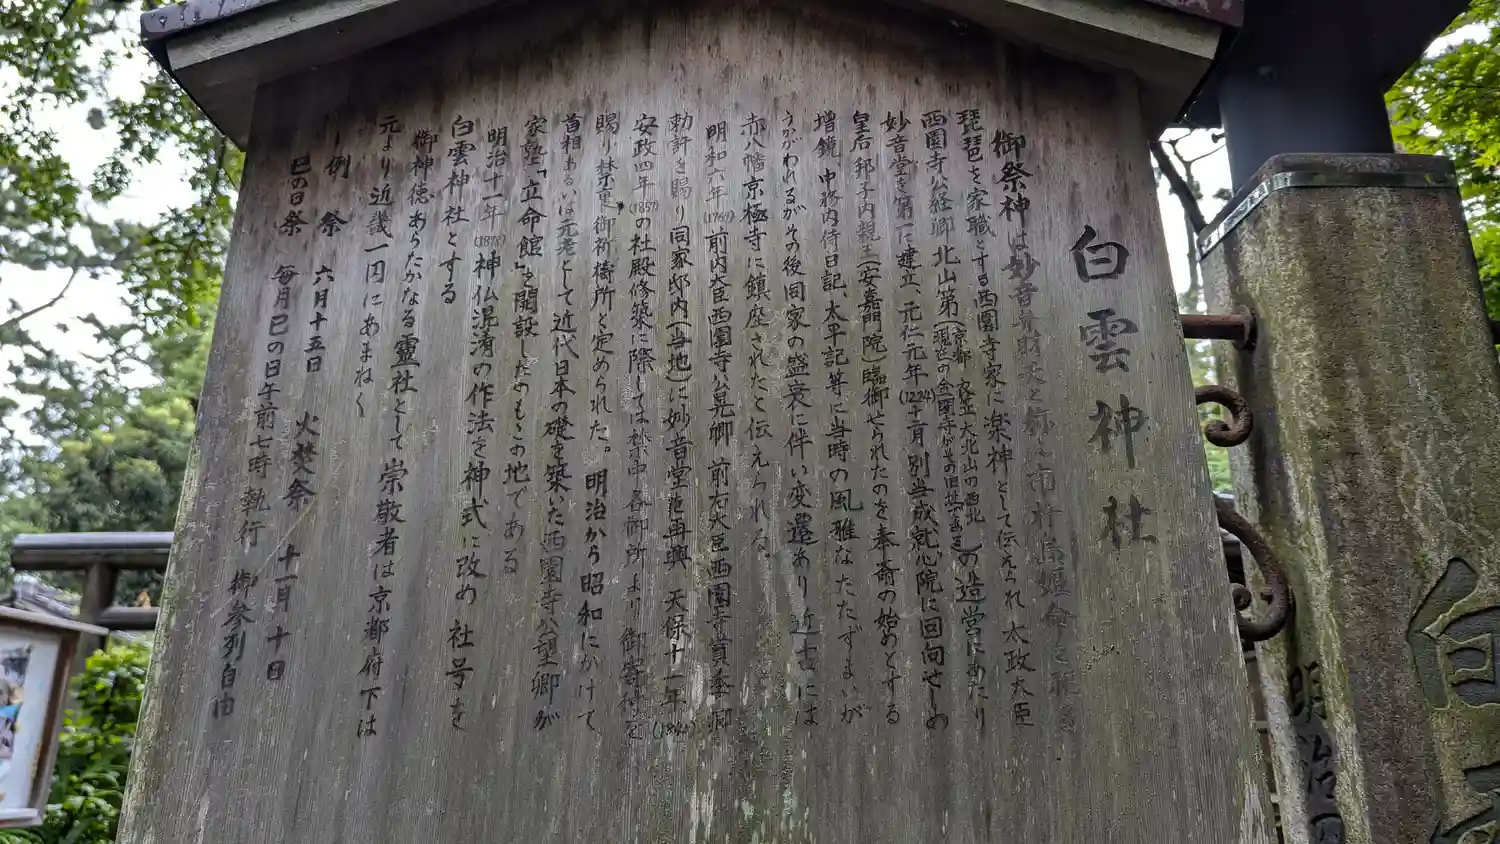 白雲神社
御祭神は妙音弁財天と称し市杵島姫命を祀る
琵琶を家職とする西園寺家に楽神として伝えられ 太政大臣
西園寺公経卿 北山第(京都 衣笠 大北山の西北 現在の金閣寺がその旧址である)の造営にあたり
妙音堂を第一に建立、元仁元年(1224)十二月別当成就心院に回向せしめ
皇后 邦子内親王(安嘉門院)臨御せられたのを奉斎の始めとする
増鏡、中務内侍日記、太平記等に当時の風雅なたたずまいが
うかがわれるがその後同家の盛衰に伴い変遷あり 近古には
赤八幡京極寺に鎮座されたと伝えられる。
明和六年(1769)前内大臣西園寺公晃卿 前右大臣西園寺賞季卿
勅許を賜り同家邸内(当地)に妙音堂再興 天保十一年(1840)
安政四年(1857)の社殿修築に際しては禁中各御所より御寄付を
賜り、禁裏御祈祷所と定められた。明治から昭和にかけて
首相あるいは元老として近代日本の礎を築いた西園寺公望卿が
家塾「立命館」を開設したのもこの地である
明治十一年(1878)神仏混淆の作法を神式に改め 社号を
白雲神社とする
御神徳あらたかなる靈社として崇敬者は京都府下は
元より近畿一円にあまねく
一例祭 六月十五日 火焚祭 十一月十日
巳の日祭 毎月巳の日午前七時執行 御参列自由
白
明治